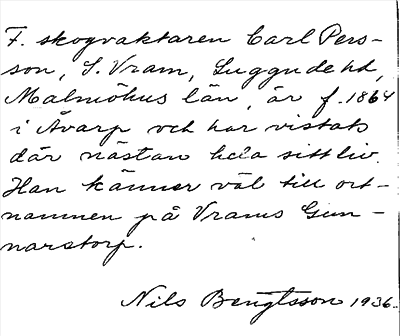 F. skogvaktaren Carl Pers-
son, S. Vram, Luggude hd,
Malmöhus län, är f. 1864
i Åvarp och har vistats
där nästan hela sitt liv.
Han känner väl till ort-
namnen på Vrams Gun-
narstorp.
Nils Bengtsson 1936.